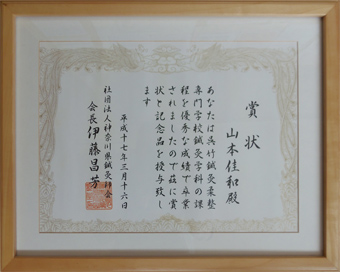 賞状
山本佳和殿
あなたは呉竹鍼灸柔整
専門学校鍼灸学科の課
程を優秀な成績で卒業
されましたので茲に賞
状と記念品を授与致し
ます
平成十七年三月十六日
社団法人神奈川県鍼灸師会
会長伊藤昌芳